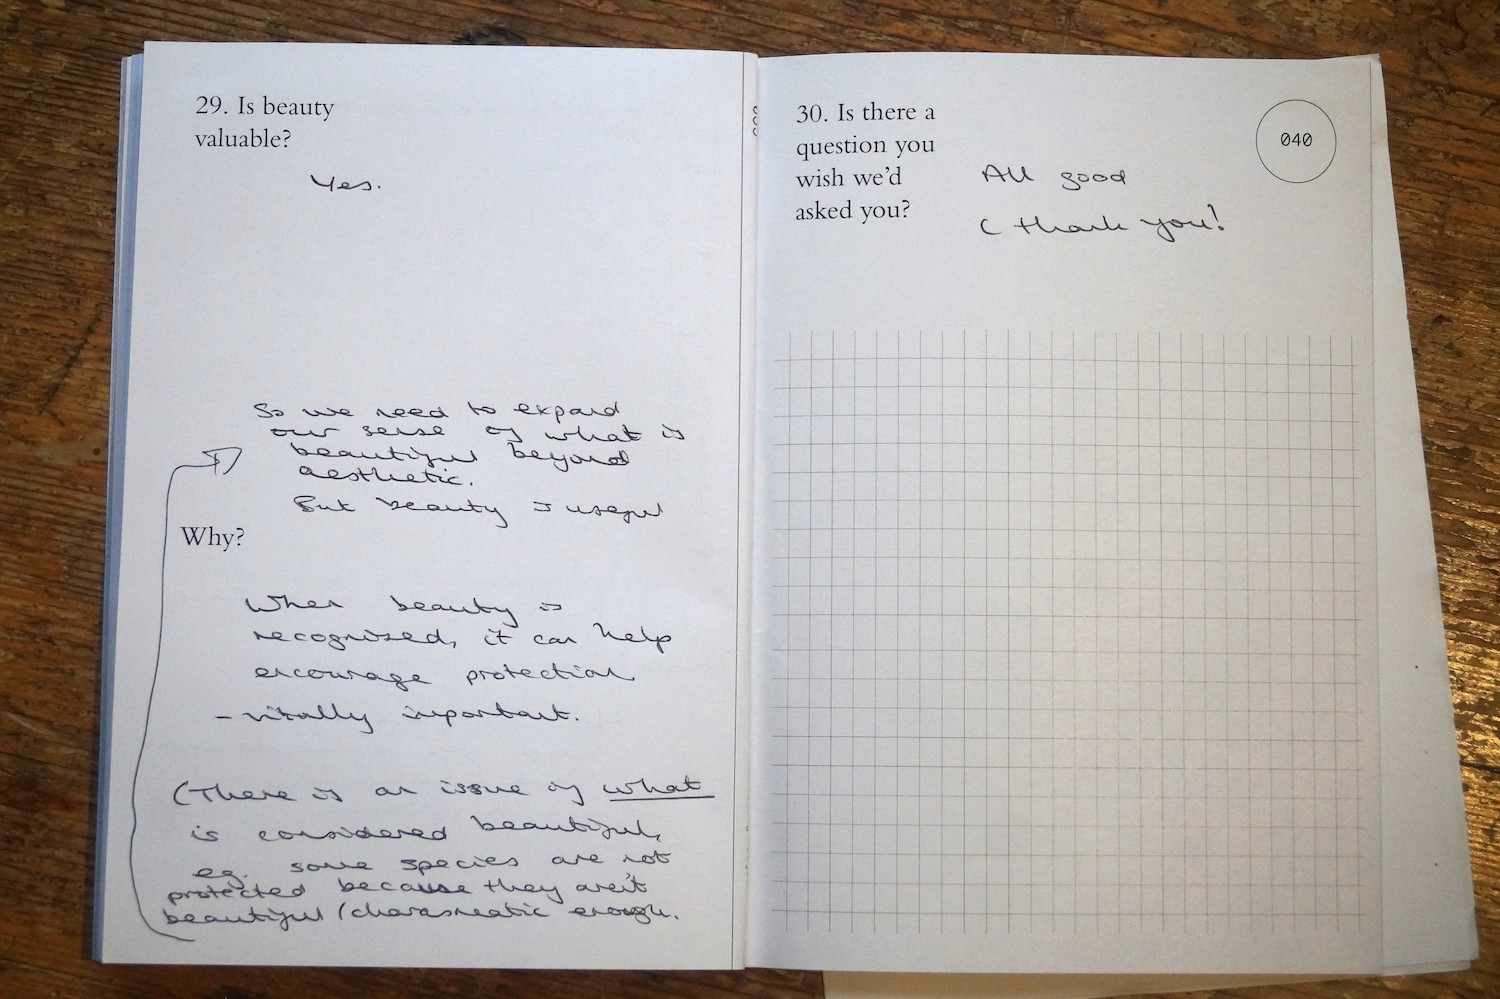 29. Is beauty
valuable?
Yes.
So we need to expand
our sense of what is
beautiful beyond
aesthetic.
But beauty is useful
Why?
When beauty is
recognised, it can help
encourage protection
- vitally important.
(There is an issue of what
is considered beautiful,
eg. some species are not
protected because they aren't
beautiful / charismatic enough.
30. Is there a
question you
wish we'd
asked you?
040
All good
(thank you!